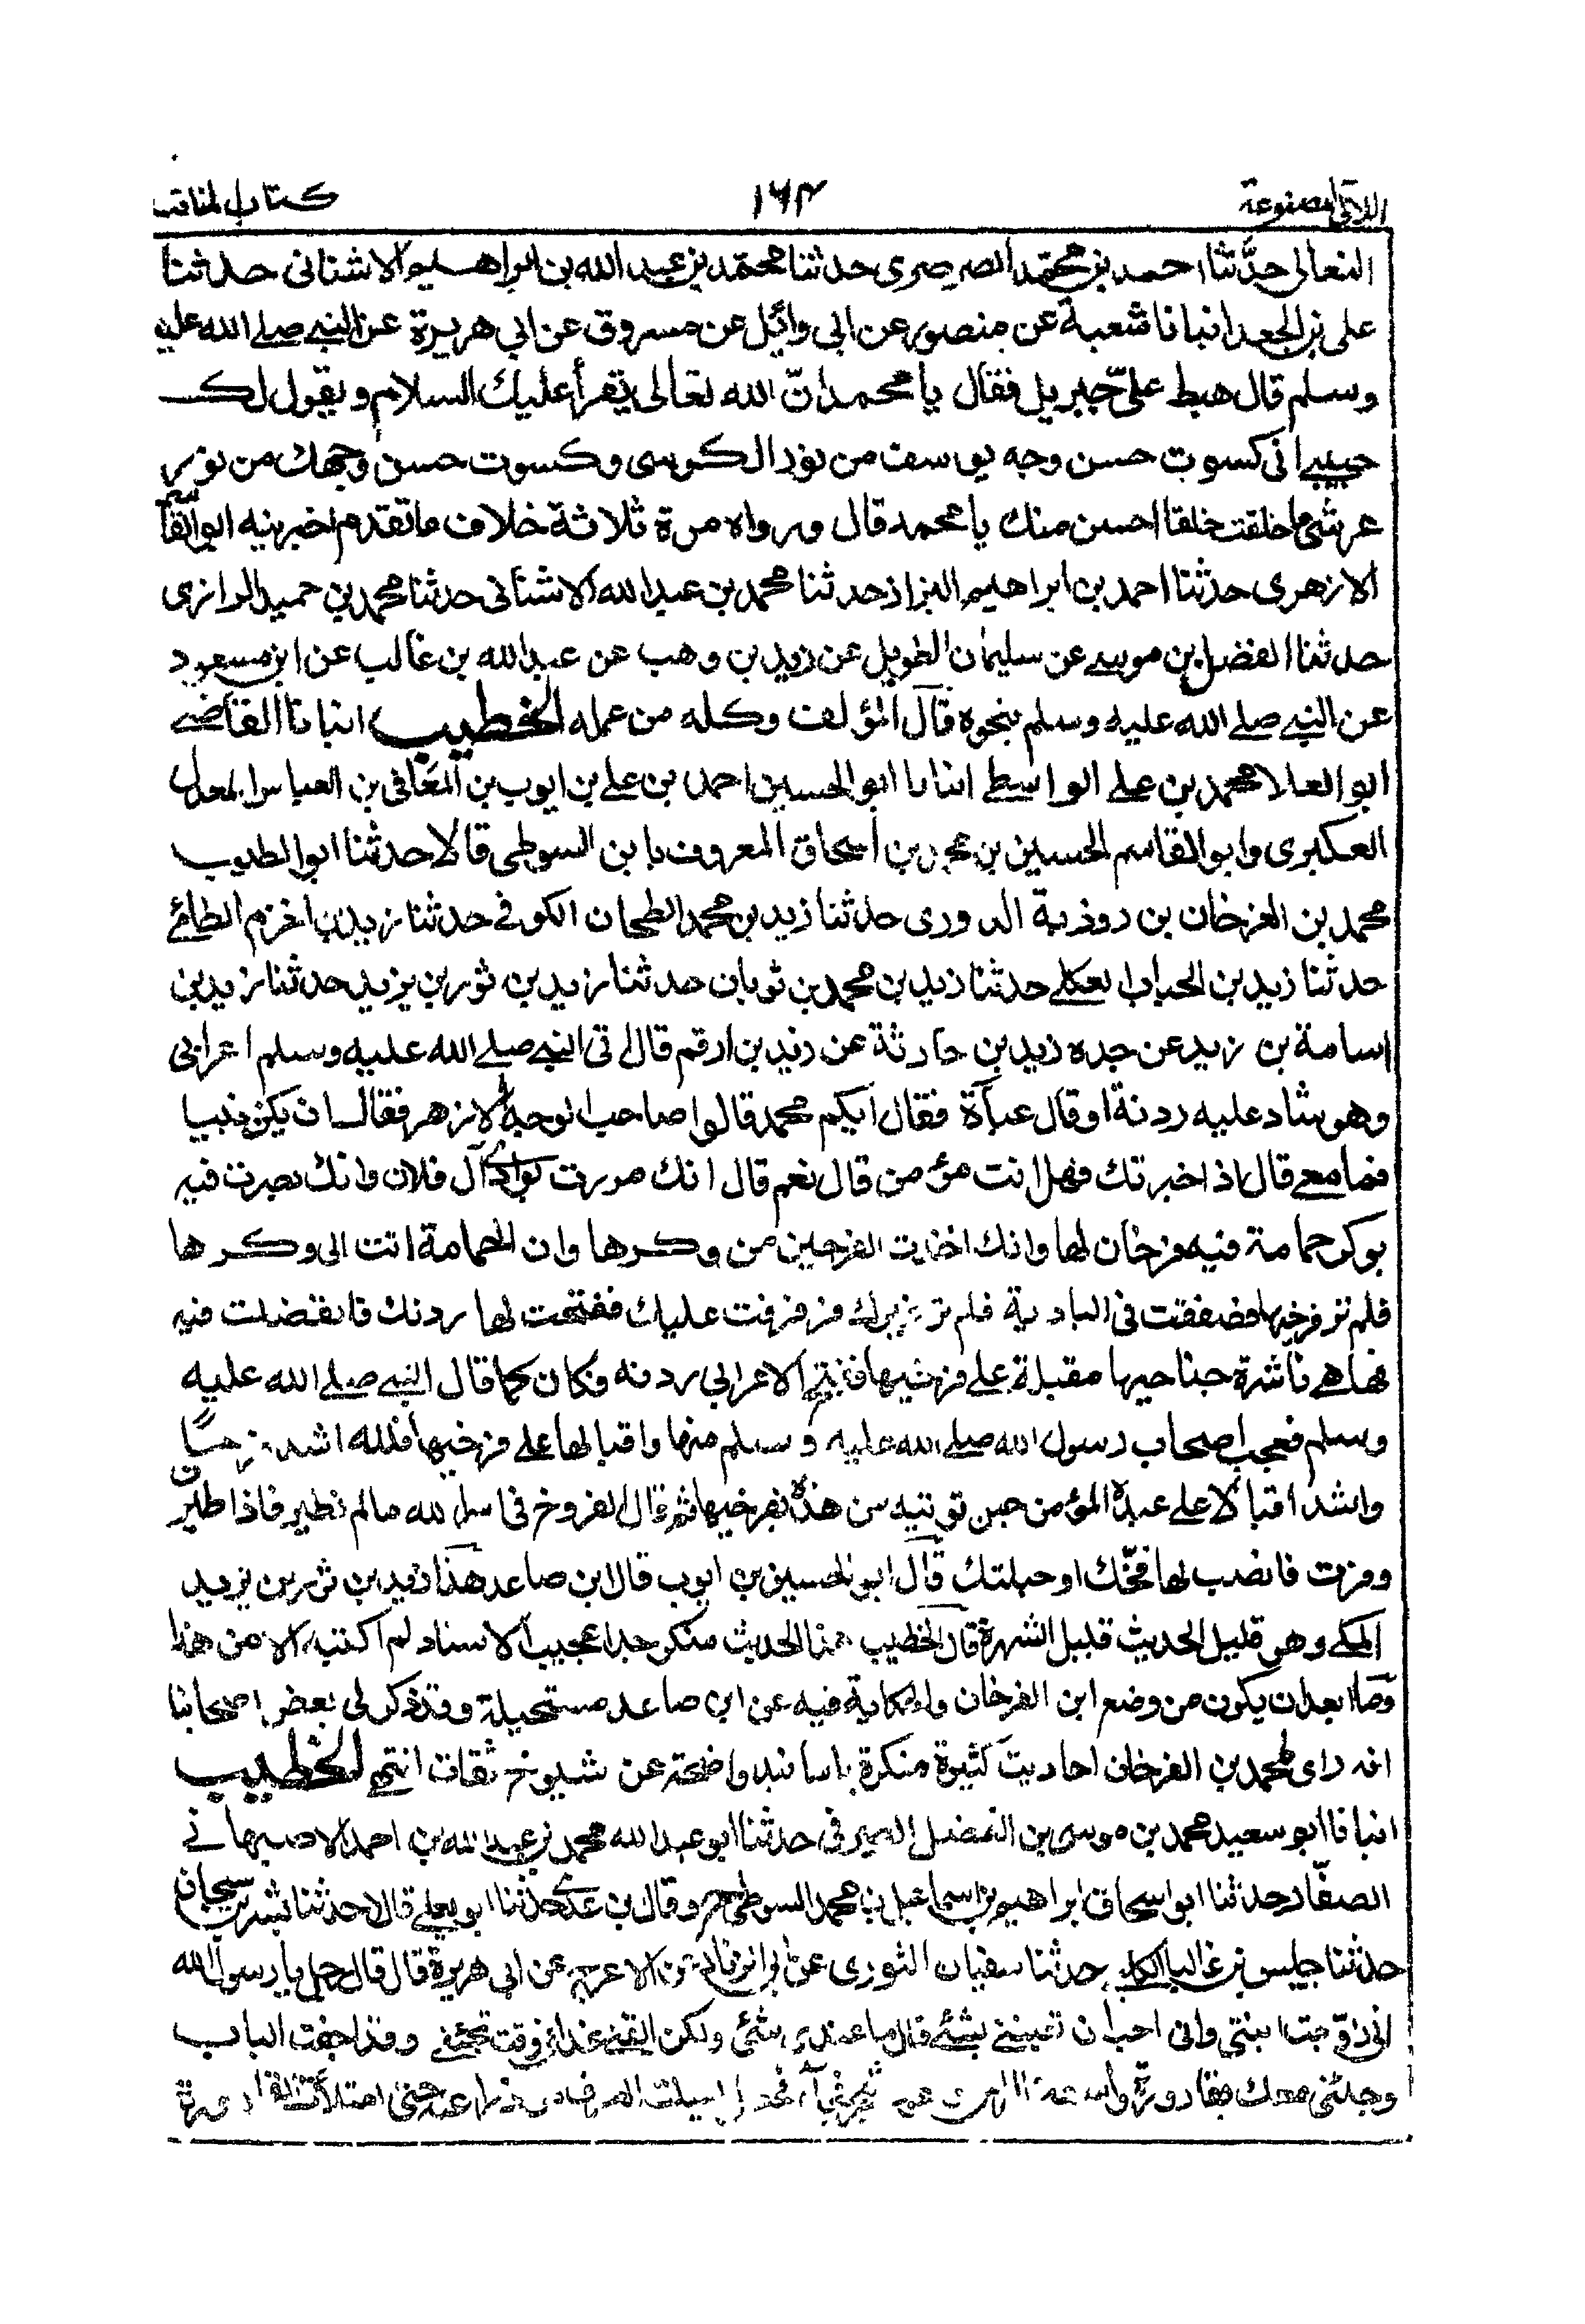 اللآلي المصنوعة ١٦٤ كتاب المناقب
النعالى حدَّثنا احمد بن محمّد الصرصرى حدثنا محمّد بن عبد الله بن ابراهيم الاشنانى حدثنا
على بن الجعد انبانا شعبة عن منصور عن ابى وائل عن مسروق عن ابى هريرة عن النبي صلے الله عليه
وسلم قال هبط علىّ جبريل فقال يا محمد انّ الله تعالى يقرأ عليك السلام و يقول لك
حبيبے انى كسوت حسن وجه يوسف من نور الكرسى وكسوت حسن وجهك من نور
عرشى ما خلقت خلقا احسن منك يا محمد قال ورواه مرة ثلاثة خلاف ما تقدم اخبرنيه ابوالقاسم
الازهرى حدثنا احمد بن ابراهيم البزاز حدثنا محمد بن عبد الله الاشنانى حدثنا محمد بن حميد الرازى
حدثنا الفضل بن موسے عن سليمان الطويل عن زيد بن وهب عن عبد الله بن غالب عن ابن مسعود
عن النبے صلے الله عليه وسلم بنحوه قال المؤلف وكله من عمله الخطيب انبانا القاضے
ابو العلا محمد بن علے الواسطے انبانا ابو الحسين احمد بن علے بن ايوب بن المعافى بن العباس المعدل
العكبرى وابو القاسم الحسين بن محمد بن اسحاق المعروف بابن السوطى قالا حدثنا ابو الطيب
محمد بن الفرخان بن روزبة الدورى حدثنا زيد بن محمد الطحان الكوفے حدثنا زيد بن اخزم الطائے
حدثنا زيد بن الحباب العكلے حدثنا زيد بن محمد بن ثوبان حدثنا زيد بن ثور بن يزيد حدثنا زيد بن
اسامة بن زيد عن جده زيد بن حارثة عن زيد بن ارقم قال اتى النبے صلے الله عليه وسلم اعرابى
وهو شاد عليه ردنة او قال عبآة فقال ايكم محمد قالوا صاحب الوجه الازهر فقال ان يكن نبيا
فما معے قال اذ اخبرتك فهل انت مؤمن قال نعم قال انك مررت بوادے آل فلان وانك بصرت فيه
بوكر حمامة فيه فرخان لها وانك اخذت الفرخين من وكرها وان الحمامة اتت الى وكرها
فلم تر فرخيها فصفقت فى البادية فلم تر غيرك فرفرفت عليك ففتحت لها ردنك فانقضت فيه
فها هے ناشرة جناحيها مقبلة على فرخيها ففتح الاعرابى ردنه فكان كما قال النبے صلے الله عليه
وسلم فعجب اصحاب رسول الله صلے الله عليه وسلم منها واقبالها على فرخيها فلله اشد فرحًا
واشد اقبالا على عبده المؤمن حين توبته من هذه بفرخيها ثم قال الفروخ فى اسار الله مالم تطير فاذا طارت
وفرت فانصب لها فخّك او حبلتك قال ابو الحسين بن ايوب قال ابن صاعد هذا زيد بن ثور بن يزيد
المكے وهو قليل الحديث قليل الشهرة قال الخطيب هذا الحديث منكر جدا عجيب الاسناد لم اكتبه الا من هذا
وما ابعد ان يكون من وضع ابن الفرخان والحكاية فيه عن ابن صاعد مستحيلة وقد ذكر لى بعض اصحابنا
انه راى لمحمد بن الفرخان احاديث كثيرة منكرة باسانيد واضحة عن شيوخ ثقات انتهى الخطيب
انبانا ابو سعيد محمد بن موسى بن الفضل الصيرفى حدثنا ابو عبد الله محمد بن عبد الله بن احمد الاصبهانے
الصفّار حدثنا ابو اسحاق ابراهيم بن اسماعيل بن محمد السوطى ح وقال بن عدے حدثنا ابو يعلے قالا حدثنا بشر بن سيحان
حدثنا حلبس بن غالب الكلبے حدثنا سفيان الثورى عن ابى الزناد عن الاعرج عن ابى هريرة قال قال رجل يا رسول الله
انى زوّجت ابنتى وانى احب ان تعيننے بشئے قال ما عندى شئ ولكن القنے غدا وقت تجئنے وقد اجفت الباب
وجئنى معك بقارورة واسعة الراس فجعل يسيلت العرق من ذراعيه حتى امتلأت القارورة